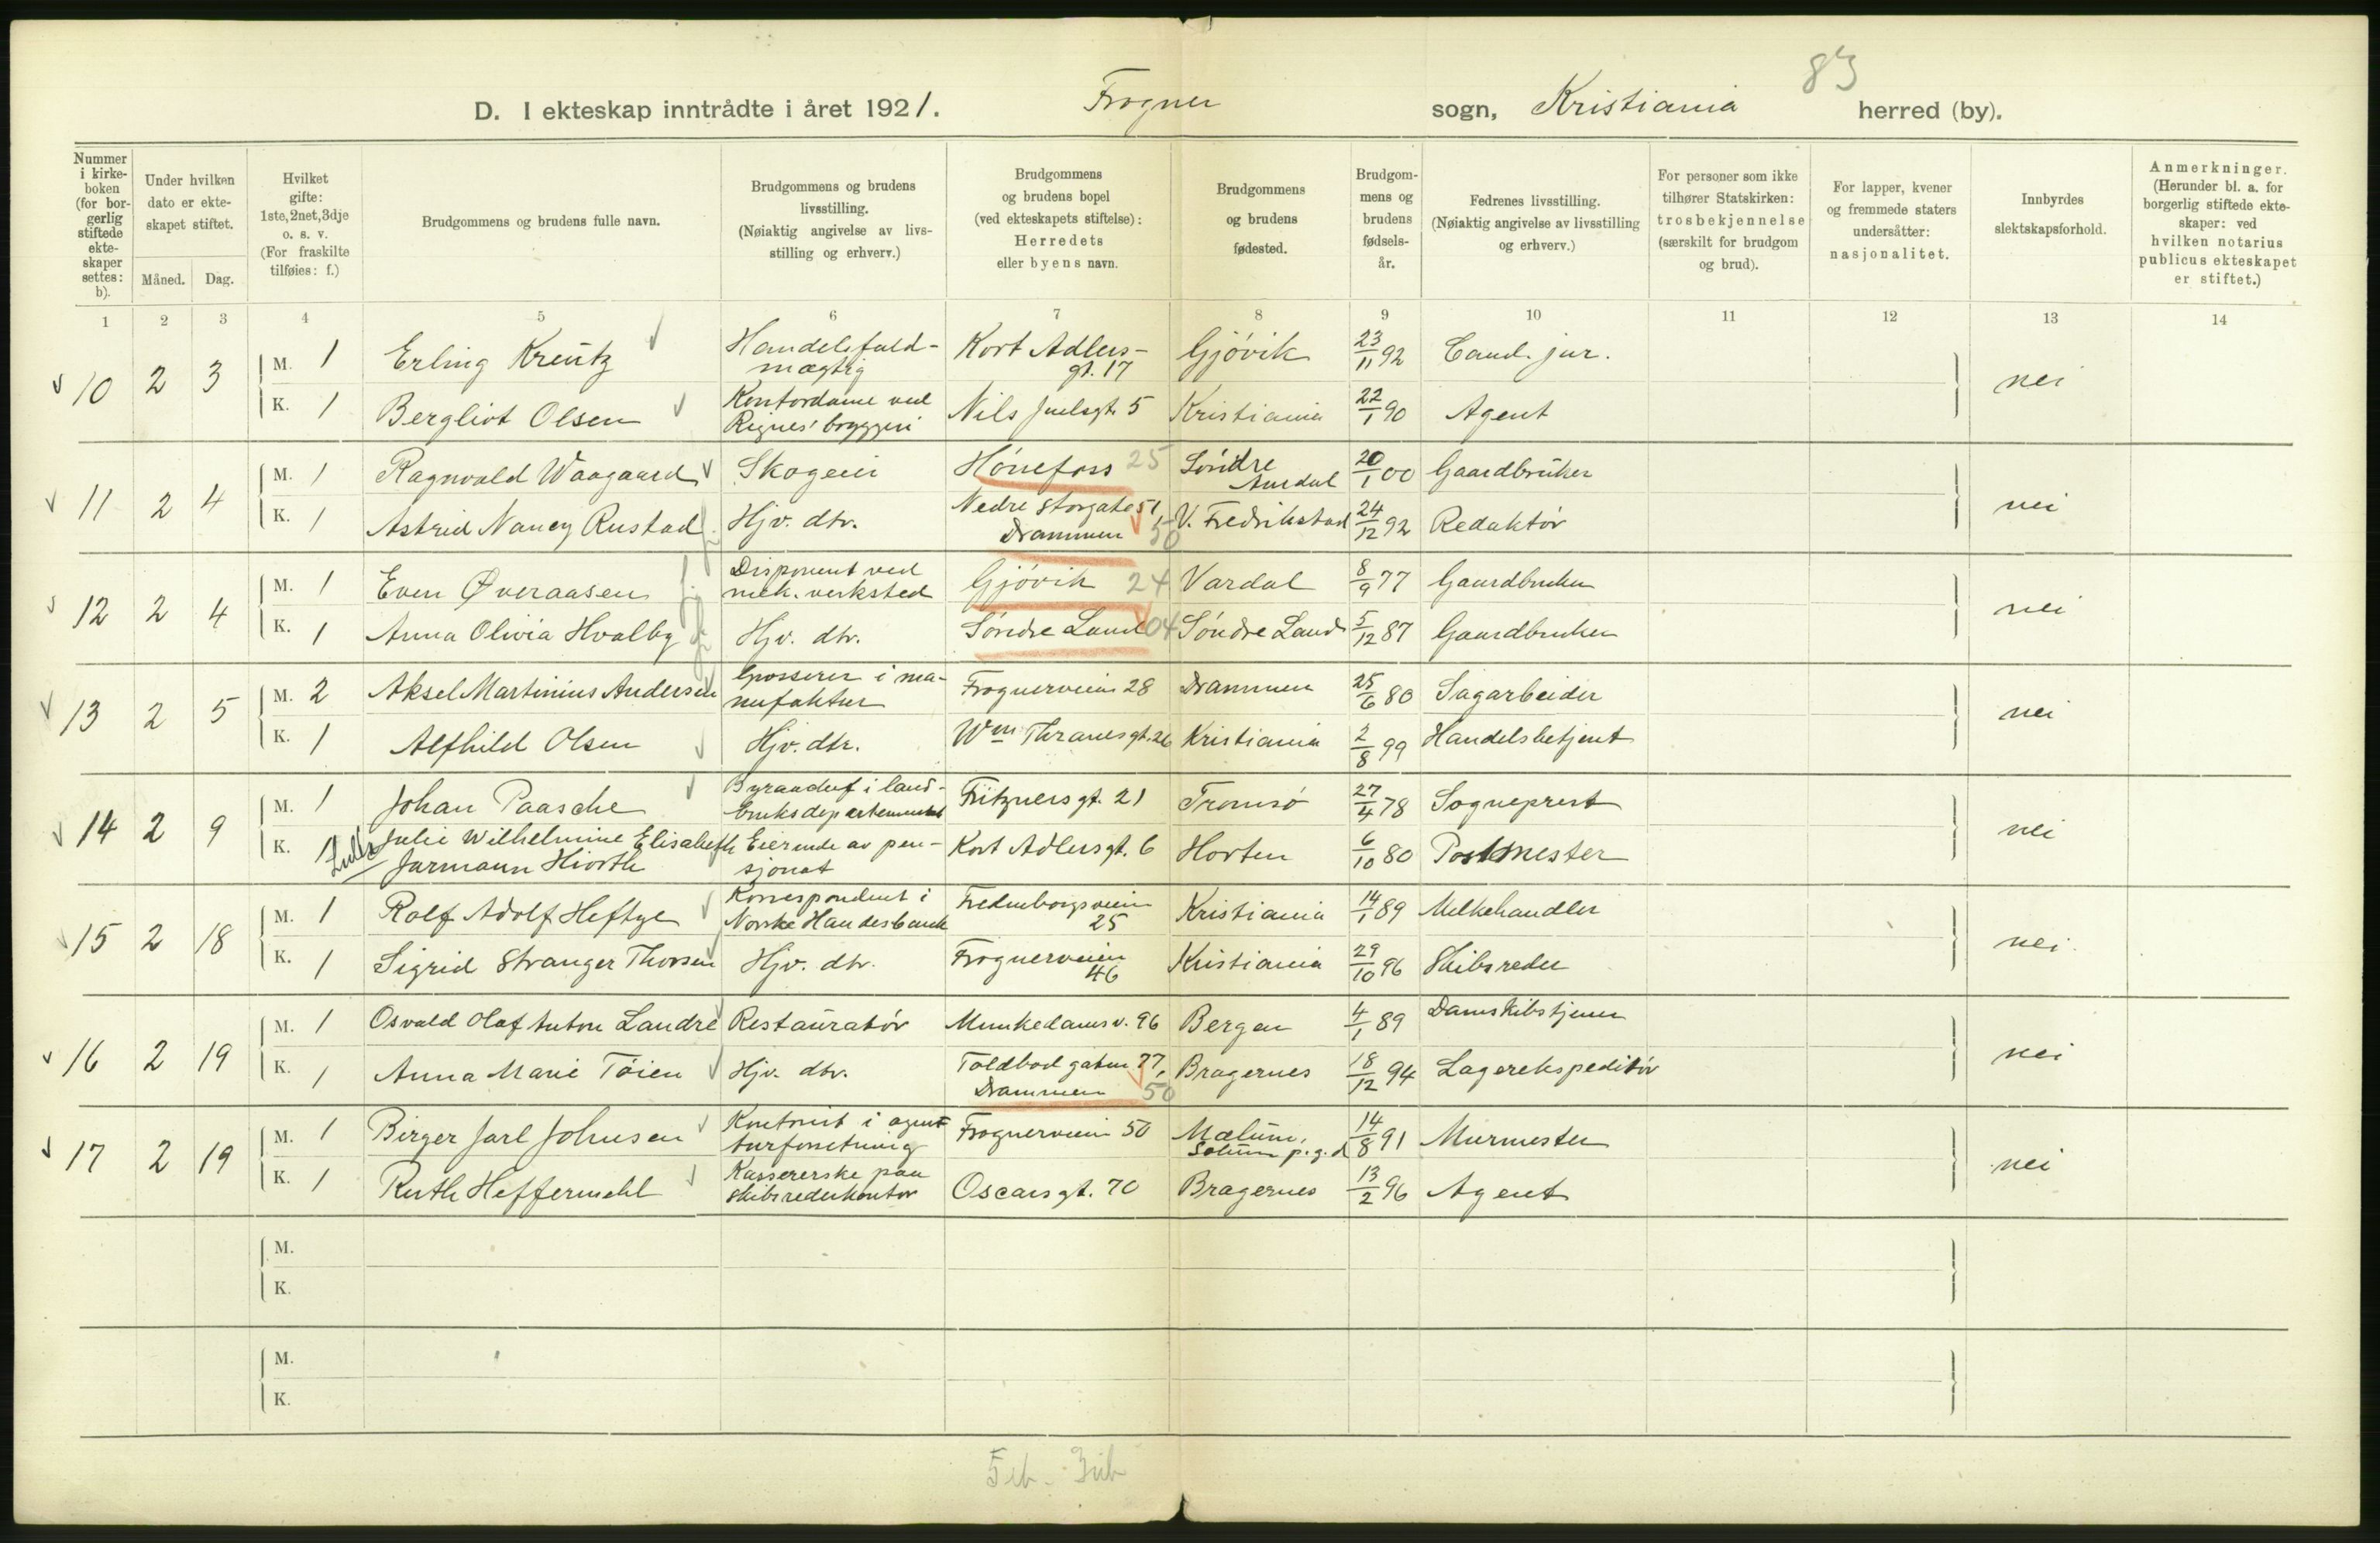 83
D. I ekteskap inntrådte i året 1921. Frogner sogn, Kristiania herred (by).
Nummer i kirkeboken (for borgerlig stiftede ekteskaper settes: b).
Under hvilken dato er ekteskapet stiftet.
Måned. Dag.
Hvilket gifte: 1ste, 2net, 3dje o. s. v. (For fraskilte tilføies: f.)
Brudgommens og brudens fulle navn.
Brudgommens og brudens livsstilling. (Nøiaktig angivelse av livsstilling og erhverv.)
Brudgommens og brudens bopel (ved ekteskapets stiftelse): Herredets eller byens navn.
Brudgommens og brudens fødested.
Brudgommens og brudens fødselsår.
Fedrenes livsstilling. (Nøiaktig angivelse av livsstilling og erhverv.)
For personer som ikke tilhører Statskirken: trosbekjennelse (særskilt for brudgom og brud).
For lapper, kvener og fremmede staters undersåtter: nasjonalitet.
Innbyrdes slektskapsforhold.
Anmerkninger. (Herunder bl. a. for borgerlig stiftede ekteskaper: ved hvilken notarius publicus ekteskapet er stiftet.)
1 2 3 4 5 6 7 8 9 10 11 12 13 14
10 2 3 M. 1 Erling Kreutz Handelsfuldmægtig Kort Adlersgt. 17 Gjövik 23/11 92 Cand. jur. nei
K. 1 Bergliot Olsen Kontordame ved Rignes' bryggeri Nils Juelsgt. 5 Kristiania 22/1 90 Agent
11 2 4 M. 1 Ragnvald Waagaard Skogeier Hönefoss 25 Söndre Aurdal 20/1 00 Gaardbruker nei
K. 1 Astrid Nancy Rustad Hjv. dtr. Nedre Storgate 51, Drammen 50 V. Fredrikstad 24/12 92 Redaktör
12 2 4 M. 1 Even Øveraasen Disponent ved mek. verksted Gjövik 24 Vardal 8/9 77 Gaardbruker nei
K. 1 Anna Olivia Hvalby Hjv. dtr. Söndre Land 04 Söndre Land 5/12 87 Gaardbruker
13 2 5 M. 2 Aksel Martinius Andersen Grosserer i manufaktur Frognerveien 28 Drammen 25/6 80 Sagarbeider nei
K. 1 Alfhild Olsen Hjv. dtr. Wm Thranesgt. 26 Kristiania 2/8 99 Handelsbetjent
14 2 9 M. 1 Johan Paasche Byraachef i landbruksdepartementet Fritznersgt. 21 Tromsö 27/4 78 Sogneprest nei
K. 1 Julie Wilhelmine Elisabeth Jarmann Hiorth Eierinde av pensjonat Kort Adlersgt. 6 Horten 6/10 80 Postmester
15 2 18 M. 1 Rolf Adolf Heftye Korrespondent i Norske Handesbank Fredensborgsveien 25 Kristiania 14/1 89 Melkehandler nei
K. 1 Sigrid Stranger Thorsen Hjv. dtr. Frognerveien 46 Kristiania 29/10 96 Skibsreder
16 2 19 M. 1 Osvald Olaf Anton Landre Restauratör Munkedamsv. 96 Bergen 4/1 89 Damskibstjener nei
K. 1 Anna Marie Töien Hjv. dtr. Toldbodgaten 77, Drammen 50 Bragernes 18/12 94 Lagerekspeditör
17 2 19 M. 1 Birger Jarl Johnsen Kontorist i agenturforretning Frognerveien 50 Mælum, Solum p.g.d 14/8 91 Murmester nei
K. 1 Ruth Heffermehl Kassererske paa skibsrederkontor Oscarsgt. 70 Bragernes 13/2 96 Agent
M.
K.
M.
K.
Feb.